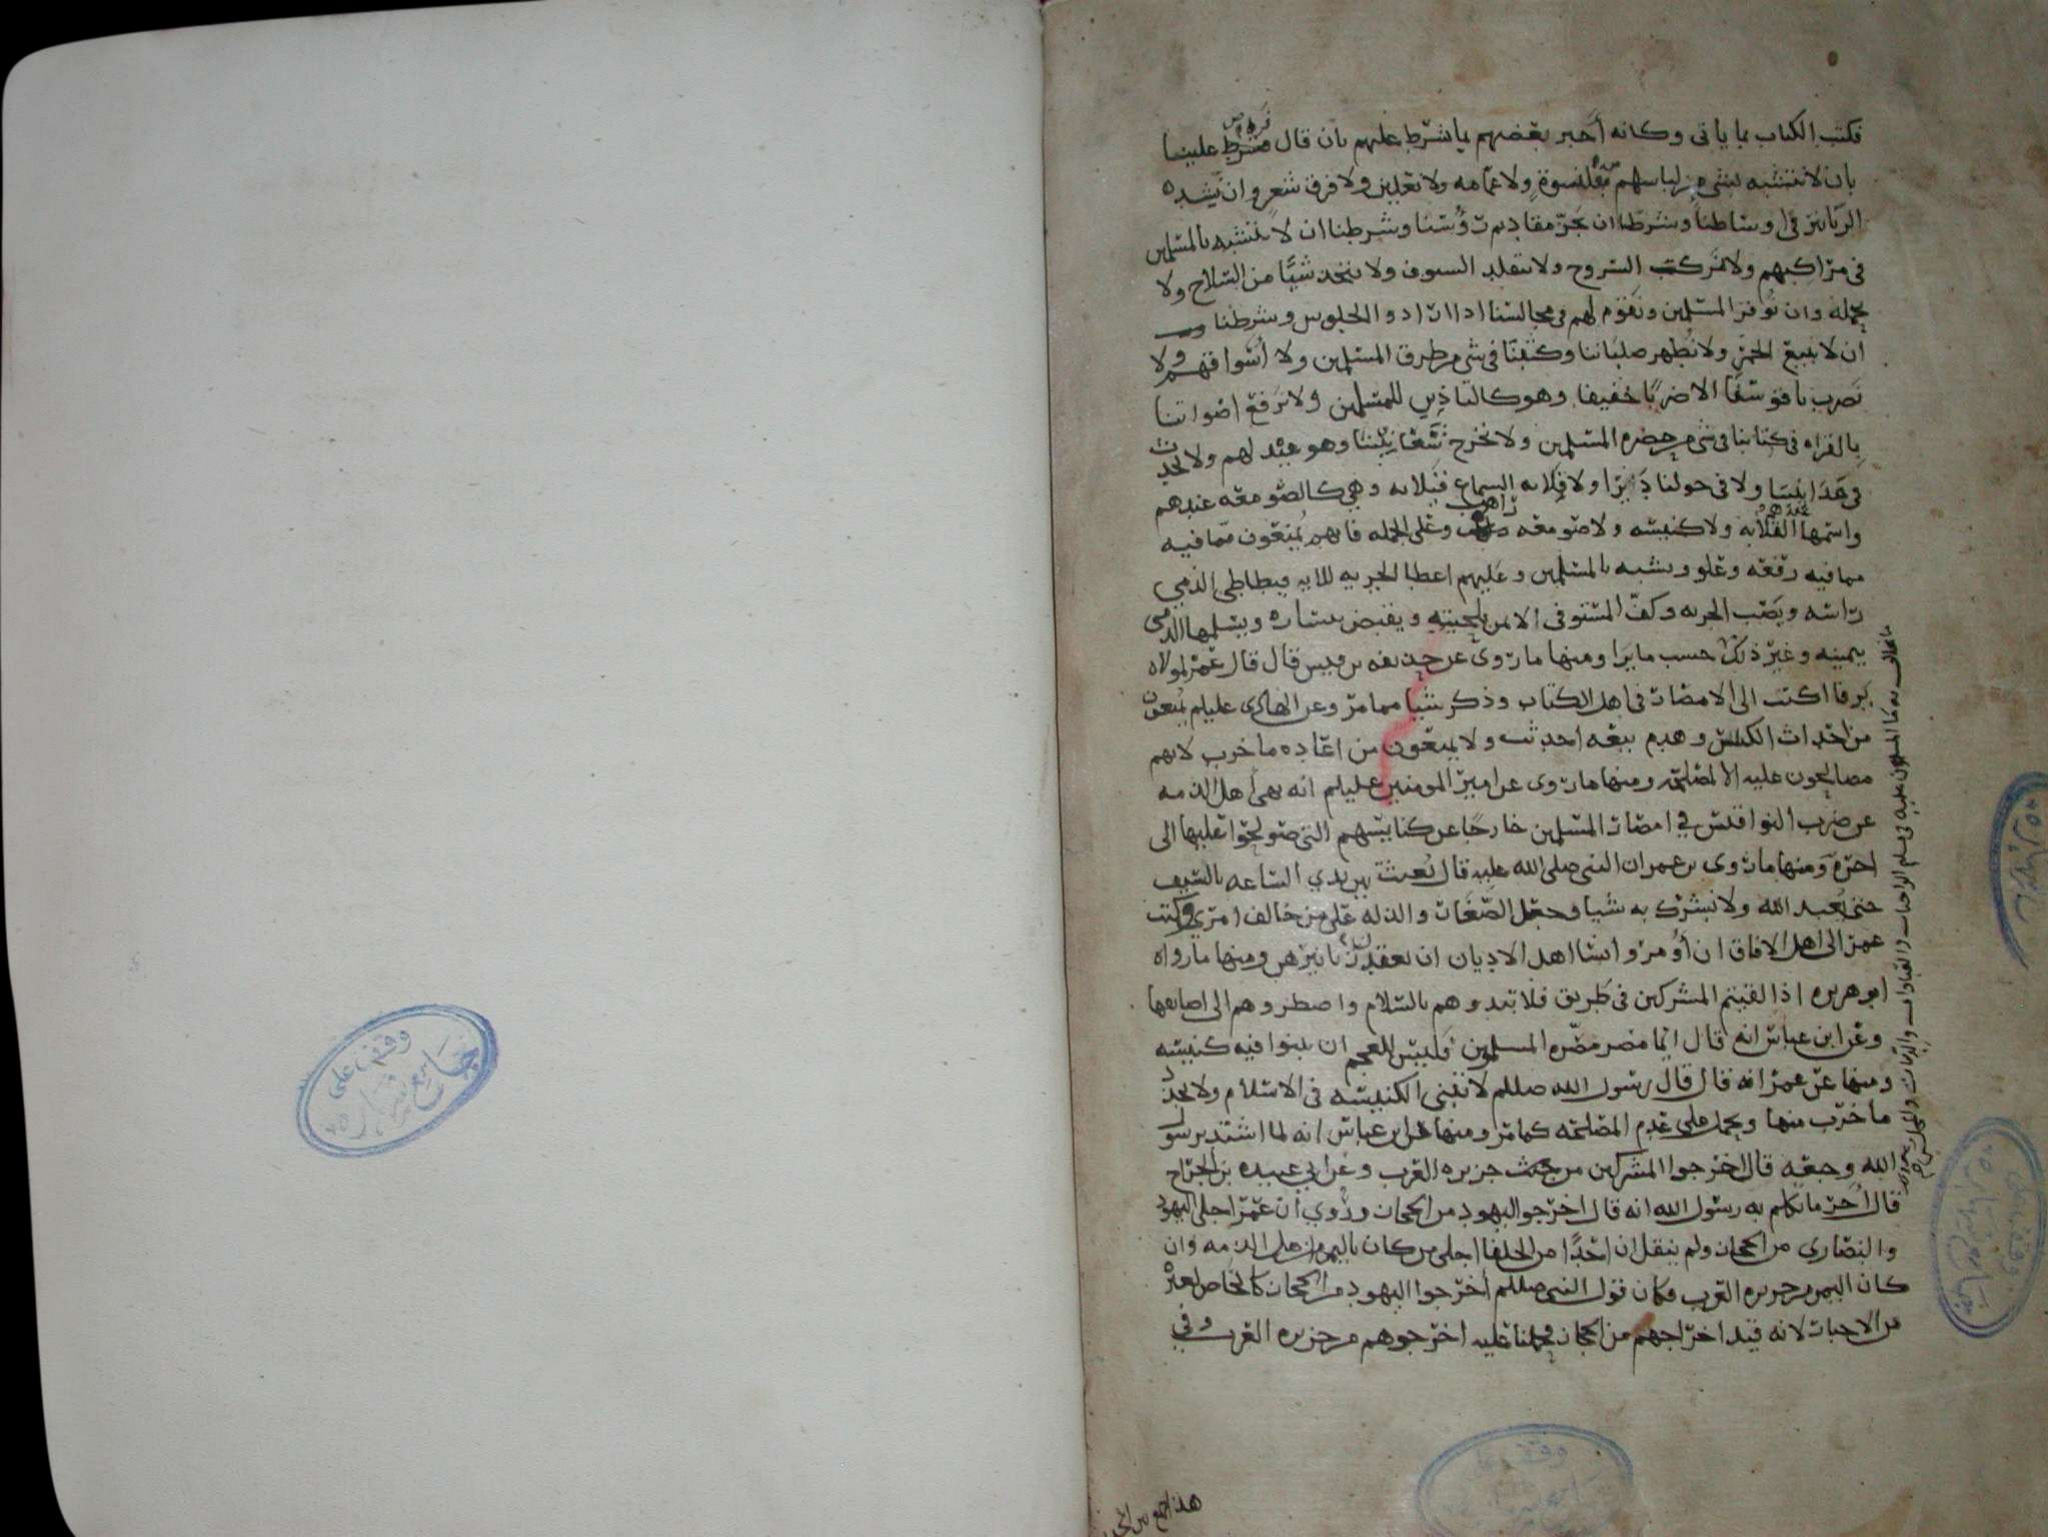 فكتب الكتاب بما ياتى وكانه أخبر بعضهم بما شرط عليهم بان قال شرط علينا
بان لا نتشبه بشى من لباسهم قلنسوة ولا عمامه ولا نعلين ولا فرق شعر وان نشد
الزنانير فى اوساطنا وشرطنا ان نجز مقاديم رؤسنا وشرطنا ان لا نتشبه بالمسلمين
فى مراكبهم ولا نركب السروج ولا نتقلد السيوف ولا نتخذ شيًا من السلاح ولا
نحمله وان نوقر المسلمين ونقوم لهم فى مجالسنا اذا ارادوا الجلوس وشرطنا
ان لا نبيع الخمر ولا نُظهر صلباننا وكتبنا فى شى من طرق المسلمين ولا أسواقهم ولا
نضرب ناقوسًا الا ضربًا خفيفا وهو كالتاذين للمسلمين ولا نرفع اصواتنا
بالقراه فى كتابنا فى شى من حضره المسلمين ولا نخرج شعانيننا وهو عيد لهم ولا نحدث
فى مدائننا ولا فى حولنا ديرًا ولا قلايه السماع قبلايه وهي كالصومعه عندهم
واسمها عندهم القلايه ولا كنيسه ولا صومعه راهب وعلى الجمله فانهم يُمنعون مما فيه
مما فيه رفعه وعلو وتشبه بالمسلمين وعليهم اعطا الجزيه للايه فيطاطى الذمي
راسه ويصب الجزيه وكف المستوفى الايمن بلحيته ويقبض بيساره ويسلمها الذمى
بيمينه وغير ذلك حسب ما يرا ومنها ما روى عن حذيفه بن قيس قال قال عمر لمولاه
يرفا اكتب الى الامصار فى اهل الكتاب وذكر شيًا مما مر وعن الهادى عليلم يُمنعون
من احداث الكنائس وهدم بيعه احدثت ولا يمنعون من اعاده ما خرب لانهم
مصالحون عليه الا لمصلحه ومنها ما روى عن امير المومنين عليلم انه نهى أهل الذمه
عن ضرب النواقيس في امصار المسلمين خارجًا عن كنايسهم التى صولحوا عليها الى
اخره ومنها ما روى بن عمر ان النبى صلى الله عليه قال بُعثت بين يدي الساعه بالسيف
حتى يُعبد الله ولا يُشرك به شيا وجعل الصغار والذله على من خالف امري وكتب
عمر الى اهل الافاق ان أؤمروا نسا اهل الاديان ان يعقدن زنانيرهن ومنها ما رواه
ابو هريره اذا لقيتم المشركين فى طريق فلا تبدوهم بالسلام واضطروهم الى اضايقها
وعن ابن عباس انه قال ايّما مصر مصّره المسلمون فليس للعجم ان يبنوا فيه كنيسه
ومنها عن عمر انه قال قال رسول الله صللم لا تبنى الكنيسه فى الاسلام ولا يجدد
ما خرب منها ويحمل على عدم المصلحه كما مر ومنها عن ابن عباس انه لما اشتد برسول
الله وجعه قال اخرجوا المشركين من جزيره العرب وعن ابي عبيده بن الجراح
قال أخر ما تكلم به رسول الله انه قال اخرجوا اليهود من الحجاز ورُوي أن عمر اجلى اليهود
والنصارى من الحجاز ولم ينقل ان احدًا من الخلفا اجلى من كان باليمن من اهل الذمه وان
كان اليمن من جزيره العرب فكان قول النبى صللم أخرجوا اليهود من الحجاز كالخاص لغيره
من الاخبار لانه قيد اخراجهم من الحجاز فحملنا عليه اخرجوهم من جزيره العرب وفي
وقف على
جامع شهاره
هذا